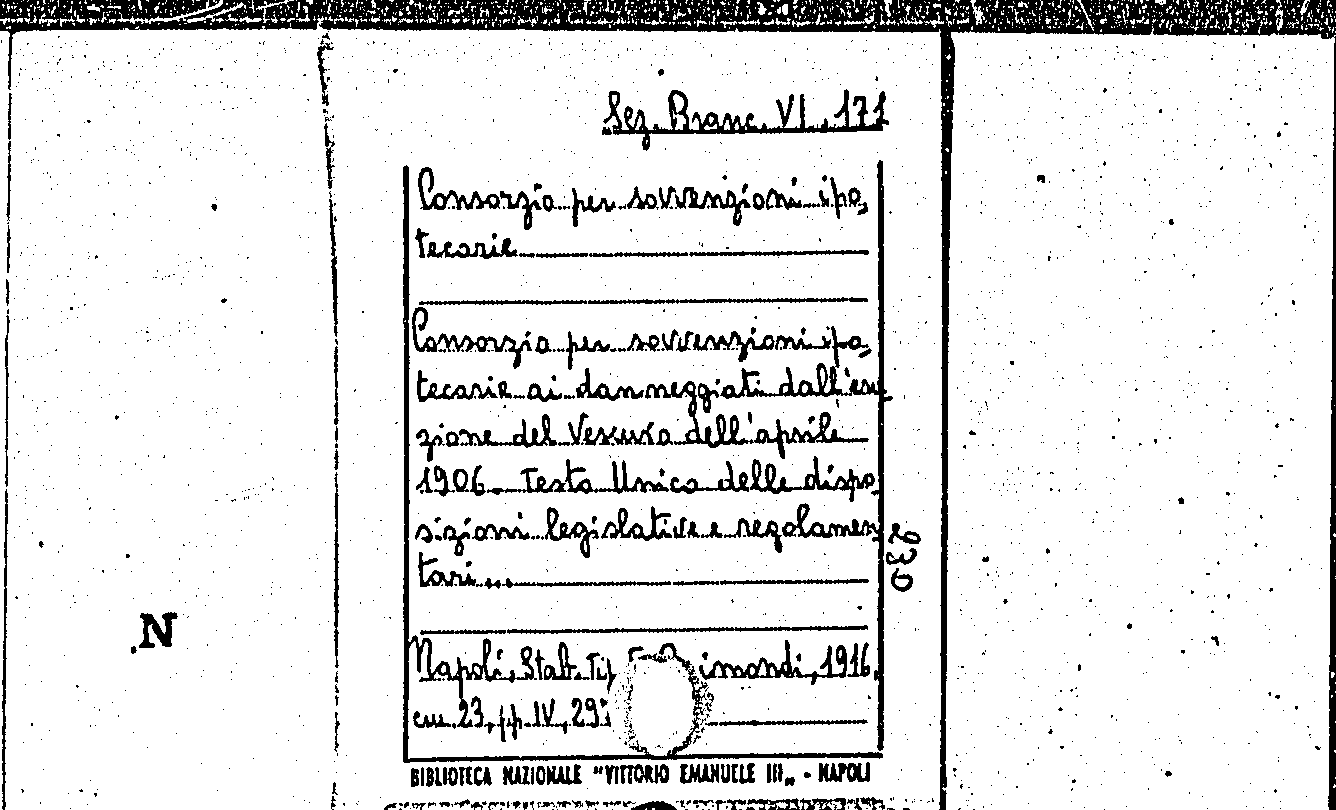 Sez. Branc. VI, 171
Consorzio per sovvenzioni ipo,
tecarie
Consorzio per sovvenzioni ipo,
tecarie ai danneggiati dall'eru,
zione del Vesuvio dell'aprile
1906. Testo Unico delle dispo,
sizioni legislative e regolamen,
tari...
230
.N
Napoli, Stab. Tip. imondi, 1916.
cm 23, pp. IV, 29
BIBLIOTECA NAZIONALE "VITTORIO EMANUELE III„ - NAPOLI